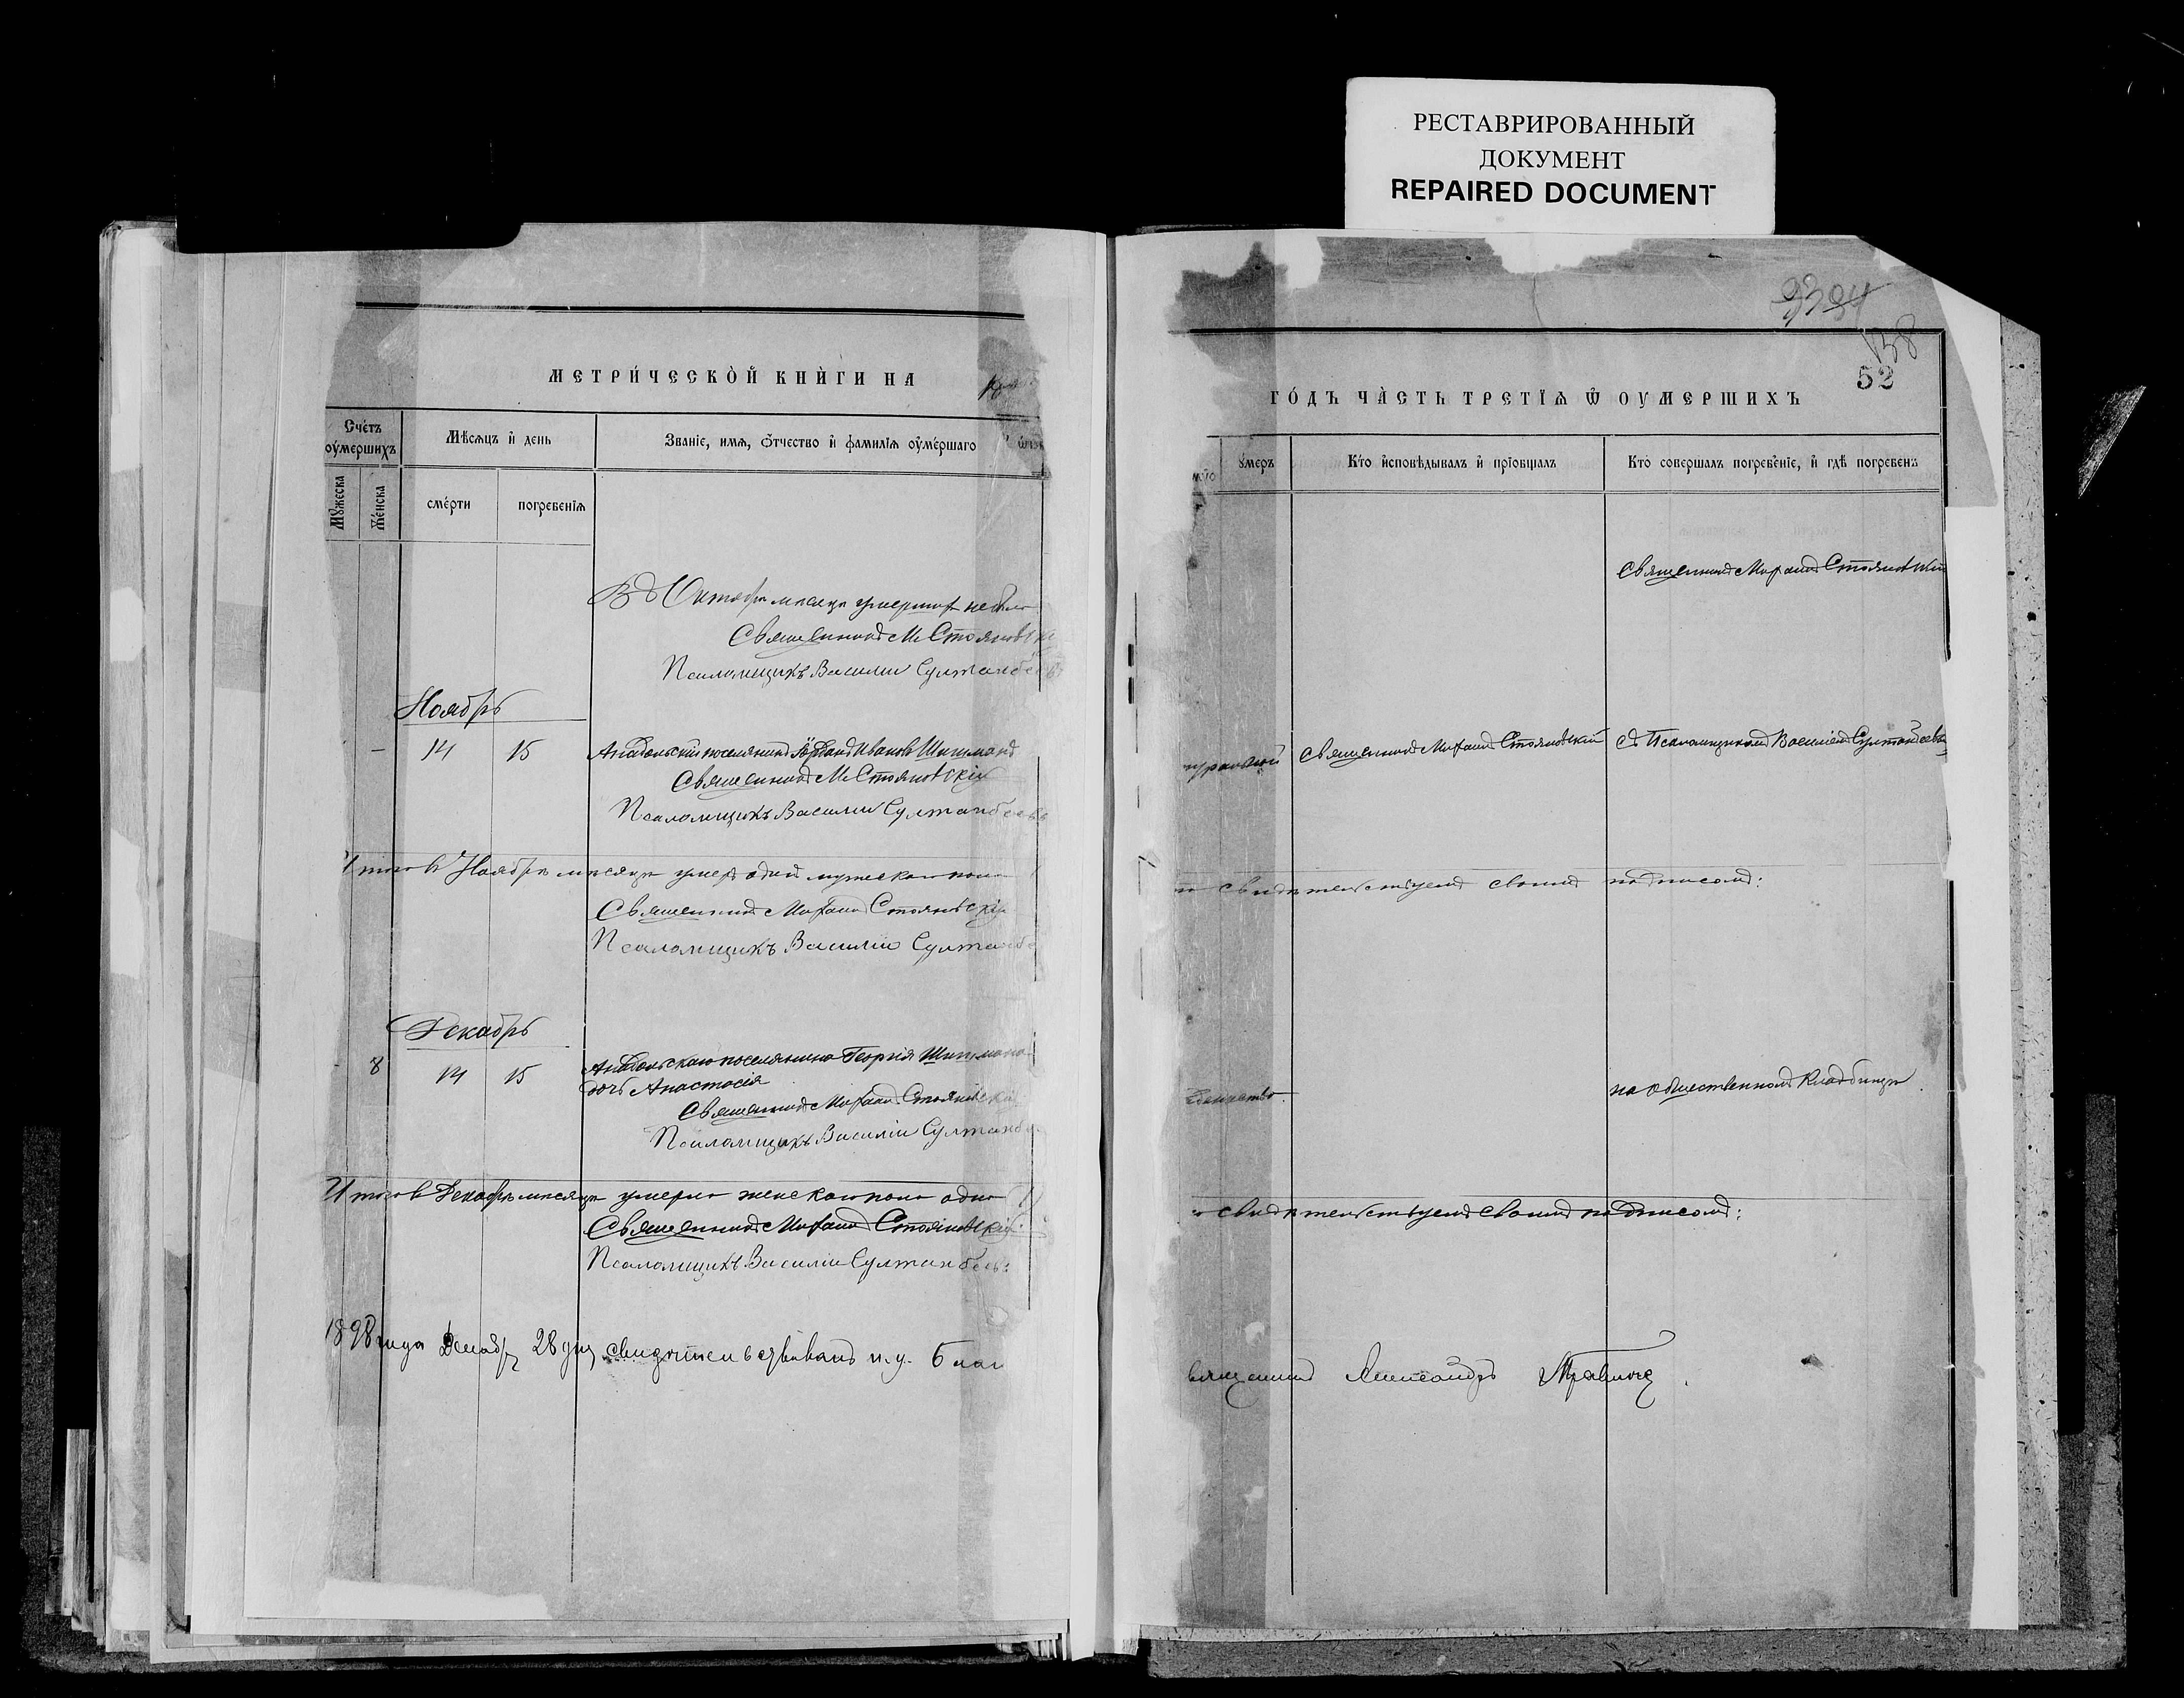 РЕСТАВРИРОВАННЫЙ
ДОКУМЕНТ
REPAIRED DOCUMENT
МЕТРИ́ЧЕСКО́Й КНИ́ГИ НА
Сче́тъ оу҆ме́ршихъ
Мѣ́сяцъ и҆ день
Зва́нїе, и҆мя, ѻ҆́тчество и҆ фами́лїя оу҆ме́ршаго
Мꙋ́жеска
Же́нска
сме́рти
погребе́нїя
Въ Октябрѣ месяцѣ умершихъ небыло
Священникъ М Стояновскі
Псаломщикъ Василій Султанбеевъ
Ноябрь
14 15 Анадольскій поселянинъ Иванов Шишманъ
Священникъ М Стояновскій
Псаломщикъ Василій Султанбеевъ
Итого въ Ноябрѣ месяцѣ умеръ одинъ мужескаго пола
Священникъ Михаилъ Стояновскій
Псаломщикъ Василій Султанбе
Декабрь
8 14 15 Анадольскаго поселянина Георгія Шишмана
дочь Анастасія
Священникъ Михаилъ Стояновскі
Псаломщикъ Василій Султанбе
Итого въ Декабрѣ месяцѣ умерло женскаго пола одна
Священникъ Михаилъ Стояновскій
Псаломщикъ Василій Султанбеевъ
1898 года Декабря 28 дня свидѣтельствовалъ и. д. благ
52
ГО́ДЪ ЧА́СТЬ ТРЕТЇЯ Ѡ҆ ОУ҆МЕРШИХЪ
оу҆́меръ
Кто̀ и҆сповѣ́дывалъ и҆ прїѻбща́лъ
Кто̀ соверша́лъ погребе́нїе, и҆ гдѣ̀ погребе́нъ
Священникъ Михаилъ Стояновскій
Священникъ Михаилъ Стояновскій
съ Псаломщикомъ Василіемъ Султанбеевы
свидѣтельствуемъ своимъ подписомъ:
на общественномъ кладбищѣ.
свидѣтельствуемъ своимъ подписомъ:
вященникъ Александръ